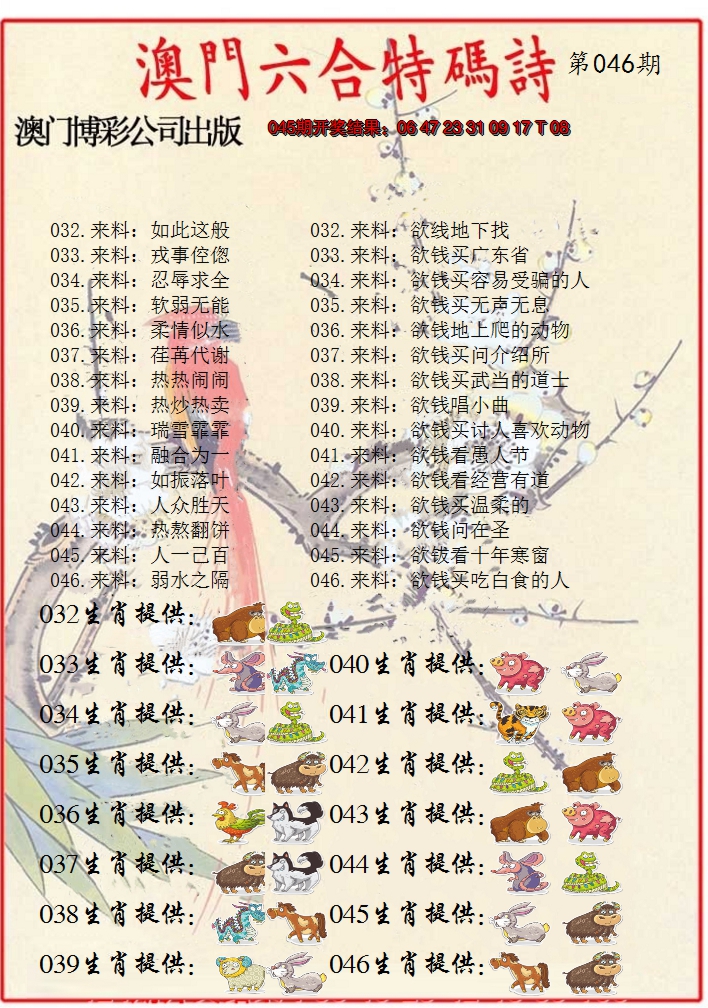 澳門六合特碼詩 第046期
澳门博彩公司出版 045期开奖结果：06 47 23 31 09 17 T 08
032.来料：如此这般 032.来料：欲线地下找
033.来料：戎事倥偬 033.来料：欲钱买广东省
034.来料：忍辱求全 034.来料：欲钱买容易受骗的人
035.来料：软弱无能 035.来料：欲钱买无声无息
036.来料：柔情似水 036.来料：欲钱地上爬的动物
037.来料：荏苒代谢 037.来料：欲钱买问介绍所
038.来料：热热闹闹 038.来料：欲钱买武当的道士
039.来料：热炒热卖 039.来料：欲钱唱小曲
040.来料：瑞雪霏霏 040.来料：欲钱买讨人喜欢动物
041.来料：融合为一 041.来料：欲钱看愚人节
042.来料：如振落叶 042.来料：欲钱看经营有道
043.来料：人众胜天 043.来料：欲钱买温柔的
044.来料：热熬翻饼 044.来料：欲钱问在圣
045.来料：人一己百 045.来料：欲钹看十年寒窗
046.来料：弱水之隔 046.来料：欲钱买吃白食的人
032生肖提供：
033生肖提供： 040生肖提供：
034生肖提供： 041生肖提供：
035生肖提供： 042生肖提供：
036生肖提供： 043生肖提供：
037生肖提供： 044生肖提供：
038生肖提供： 045生肖提供：
039生肖提供： 046生肖提供：